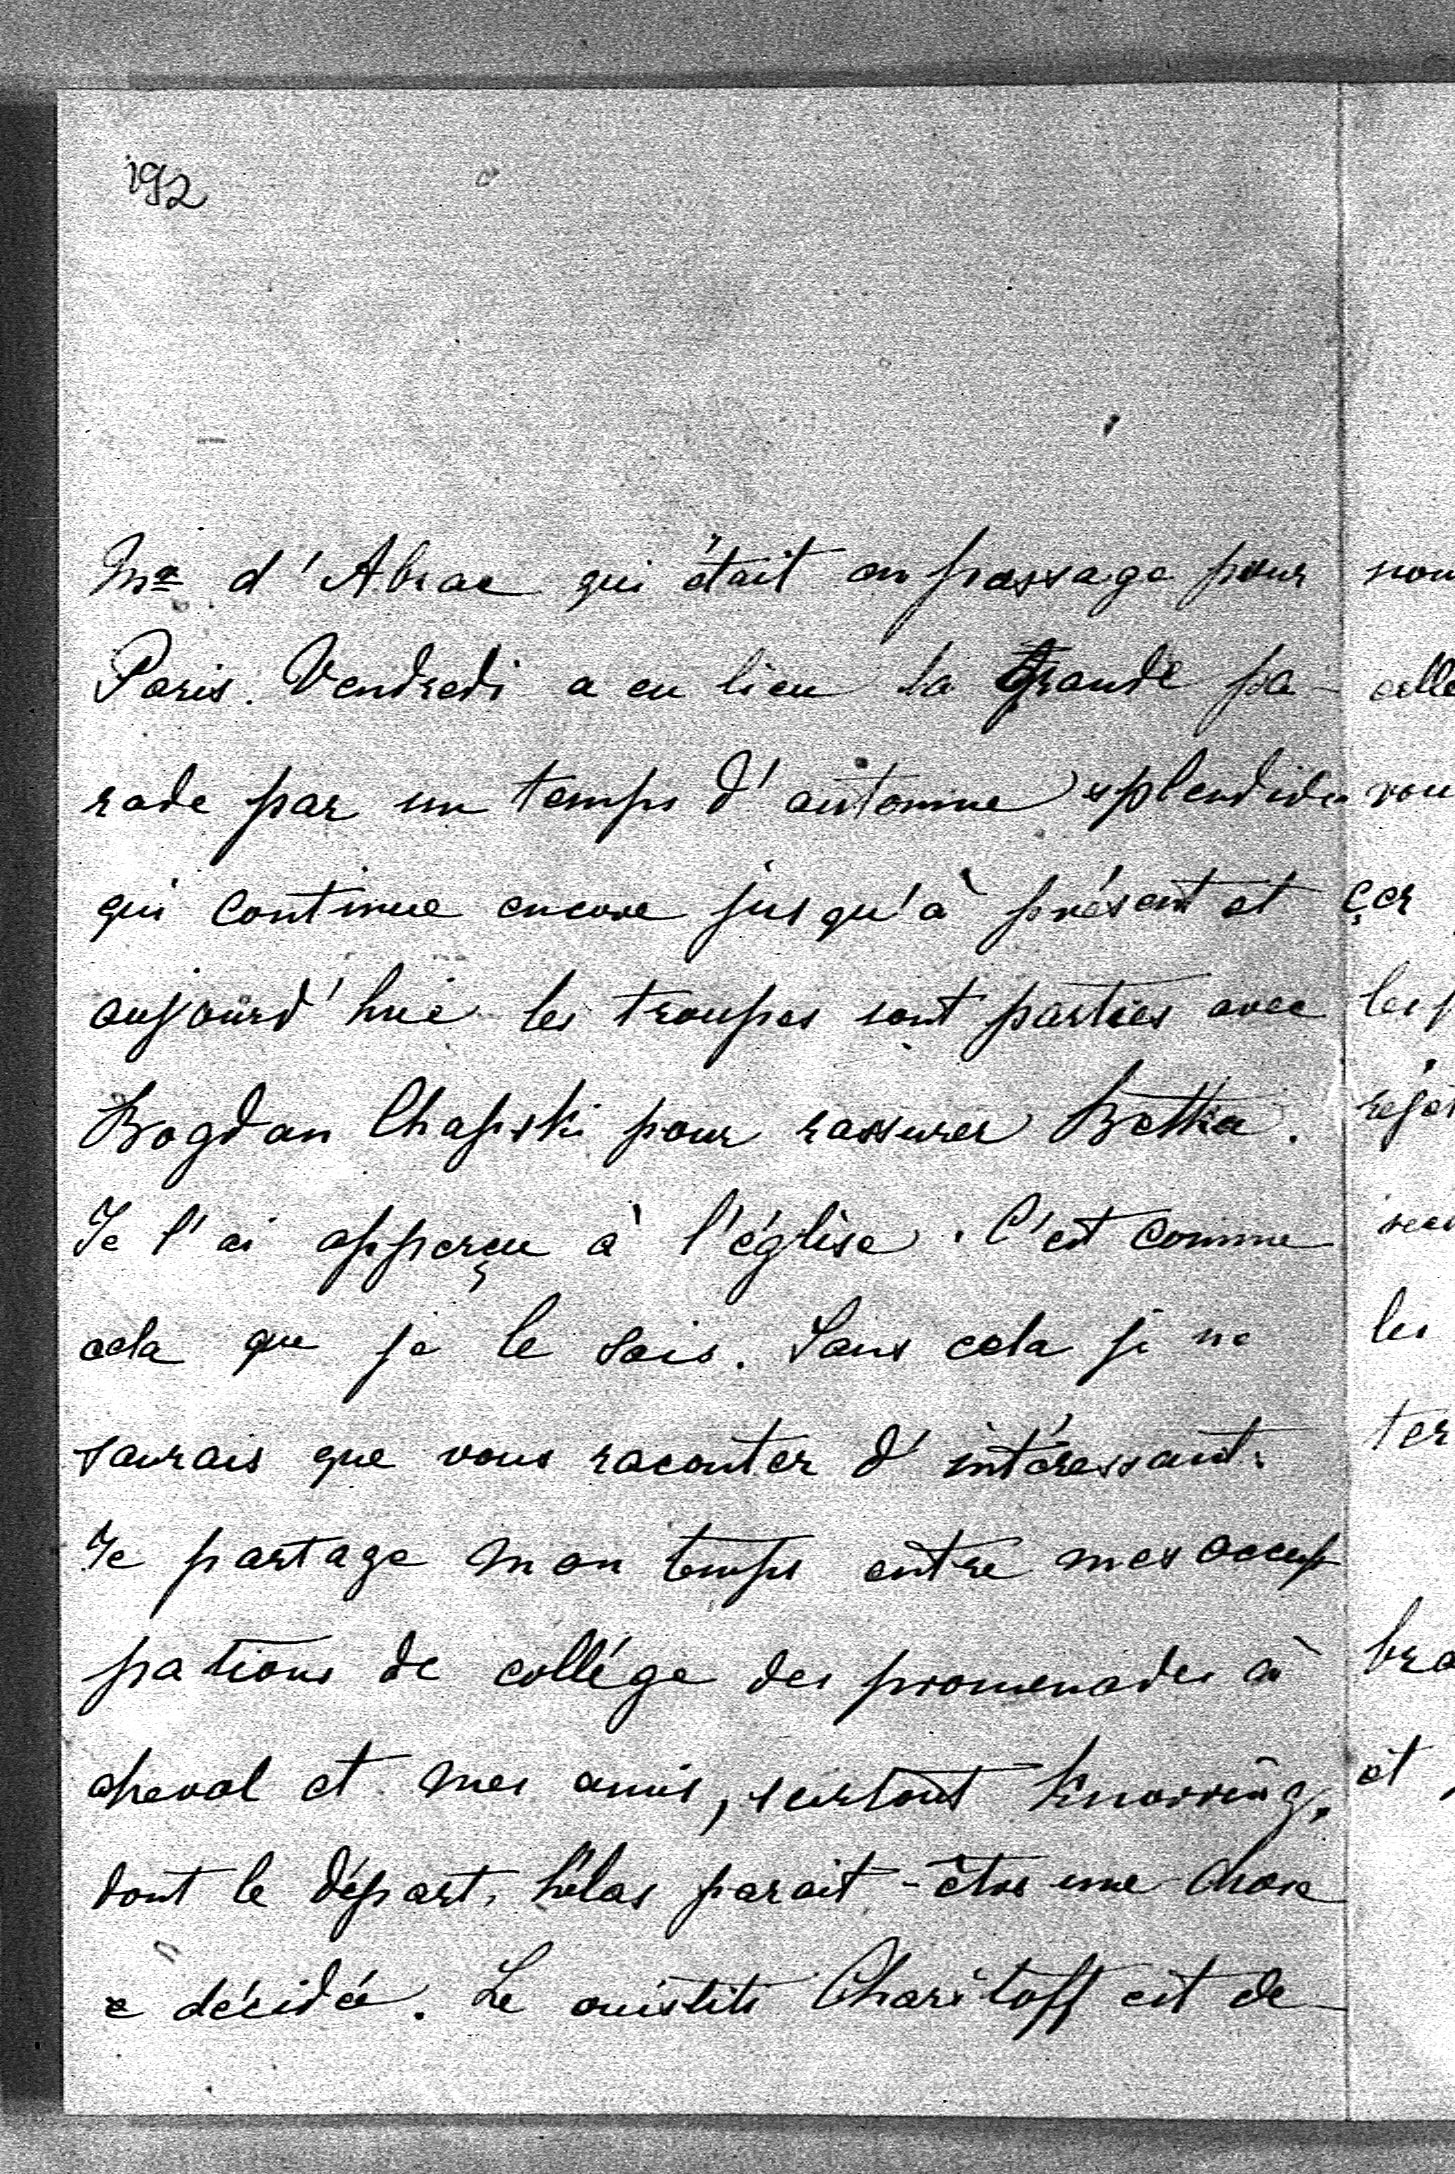 192
Mr d'Abrac qui était en passage pour
Paris. Vendredi a eu lieu la grande pa-
rade par un temps d'automne splendide
qui continue encore jusqu'à présent et
aujourd'hui les troupes sont parties avec
Bogdan Chapski pour rassurer Betka.
Je l'ai apperçu à l'église. C'est comme
cela que je le sais. Sans cela je ne
saurais que vous raconter d'intéressant.
Je partage mon temps entre mes occup
pations de collége des promenades à
cheval et mes amis, surtout Knorring,
dont le départ, hélas parait-être une chose
décidée. Le ouistiti Charitoff est de-
nou
celle
vou
çer
les
rejo
les
ter
bra
et